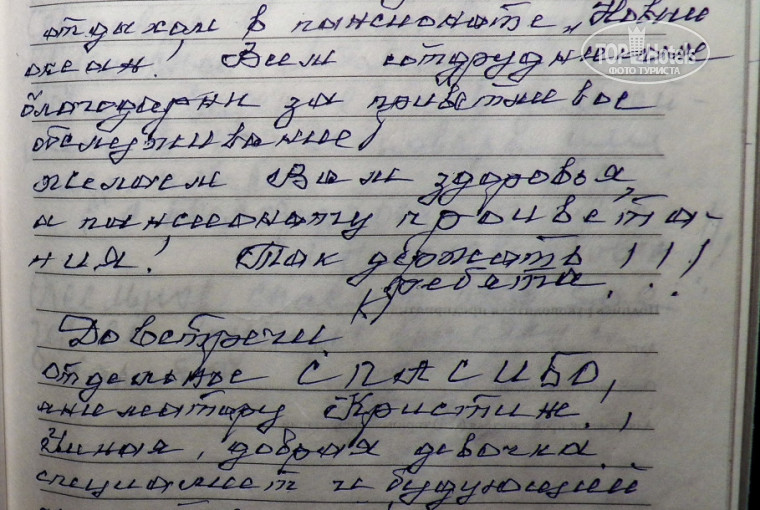 отдыхом в пансионате „Новый
океан"! Всем сотрудникам
TOPHotels
ФОТО ТУРИСТА
благодарны за приветливое
обслуживание!
Желаем Вам здоровья,
а пансионату процвета-
ния! Так держать
ребята!!!
До встречи
отдельное СПАСИБО,
аниматору Кристине,
Умная, добрая девочка
специалист и будующей